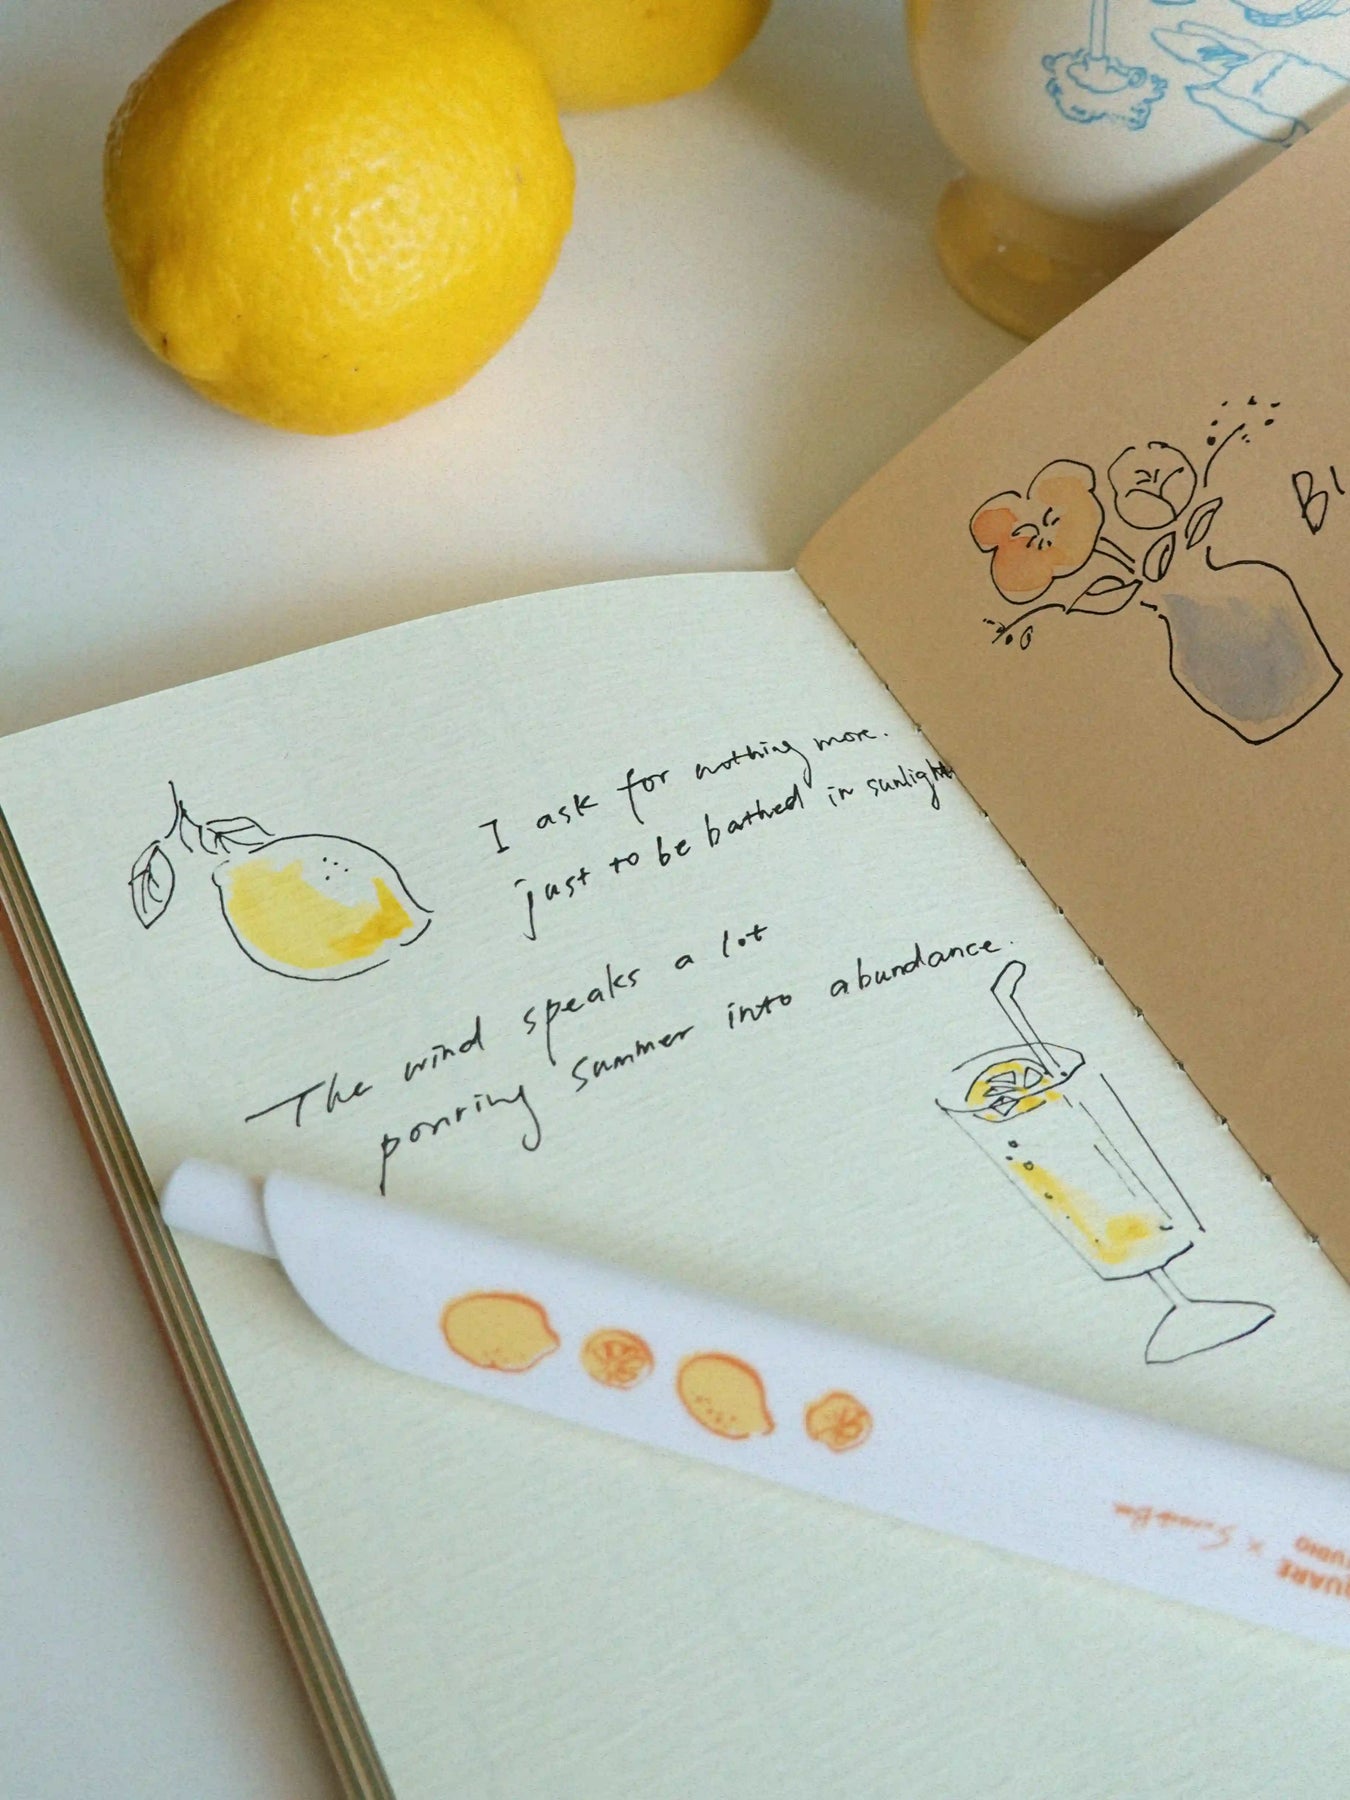 I ask for nothing more.
just to be bathed in sunlight
The wind speaks a lot
pouring summer into abundance.
Bl